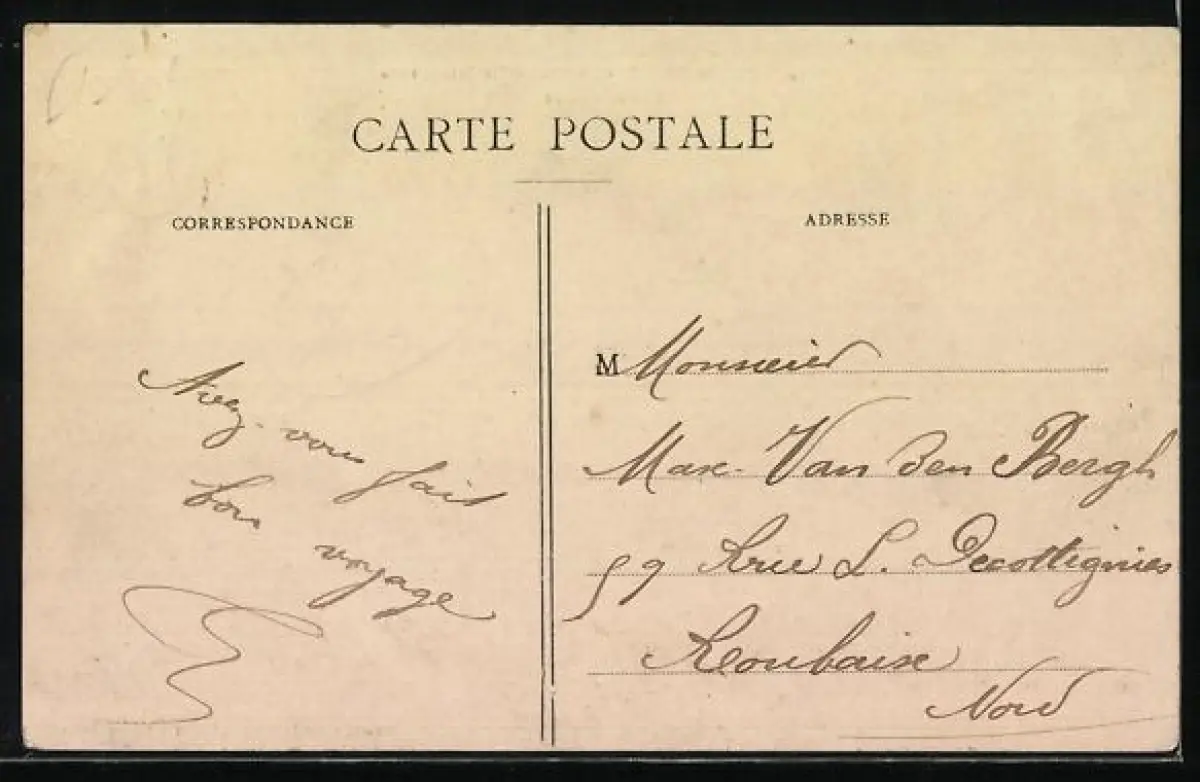 CARTE POSTALE
CORRESPONDANCE
Avez-vous fait
bon voyage
ADRESSE
M Monsieur
Max Van den Bergh
59 Rue L. Decottignies
Roubaix
Nord